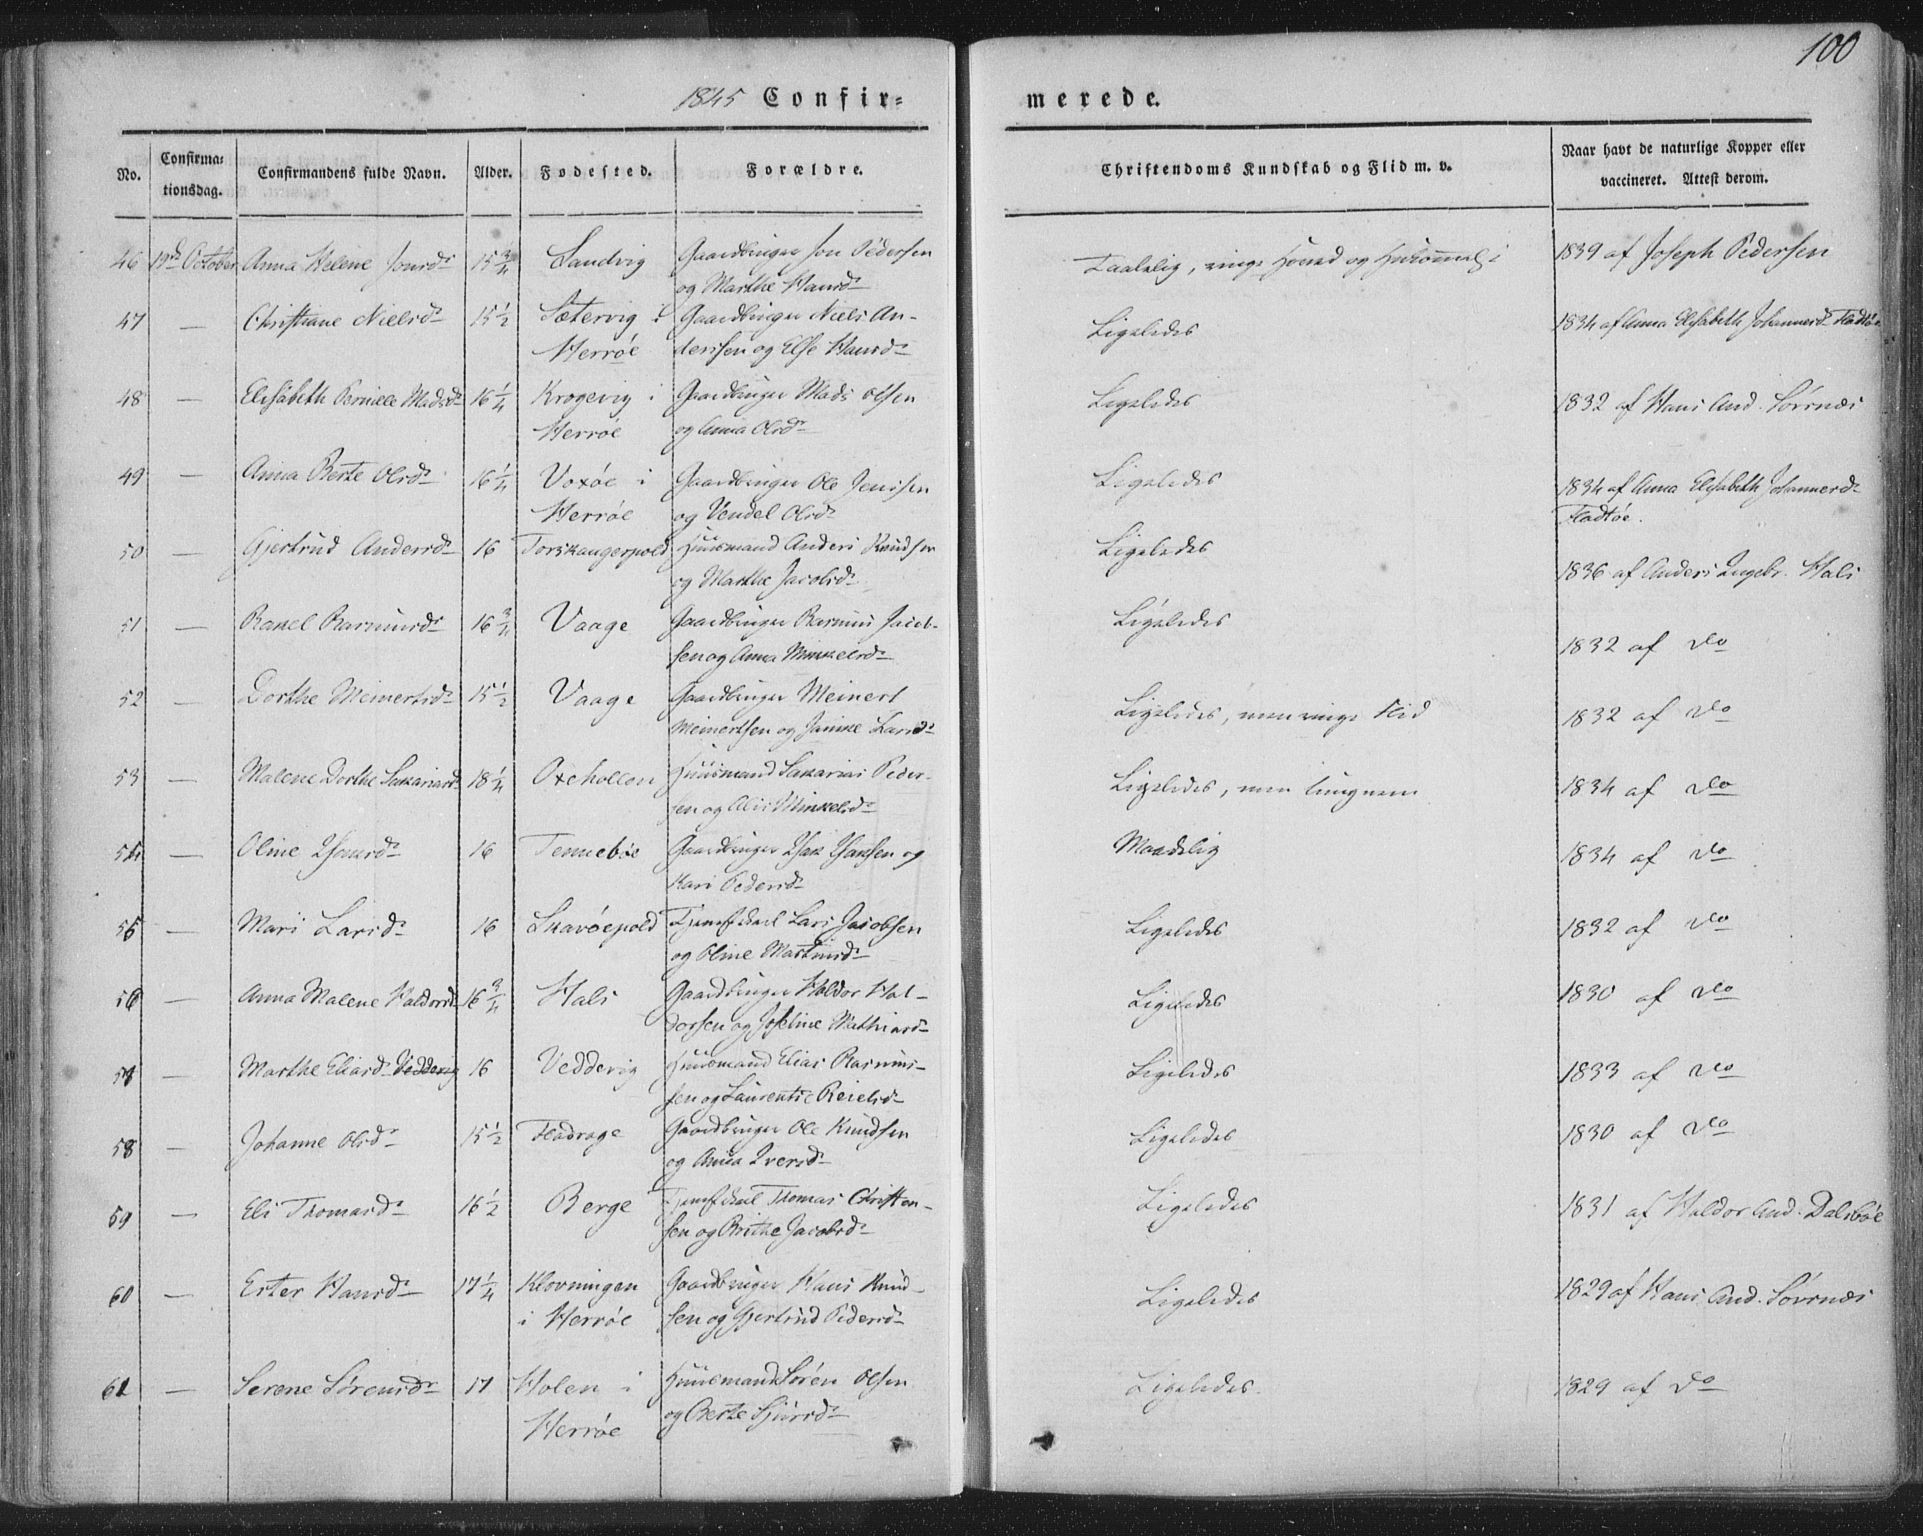 100
1845 Confir=
merede.
No.
Confirma=
tionsdag.
Confirmandens fulde Navn.
Alder.
Fødested.
Forældre.
Christendoms Kundskab og Flid m. v.
Naar havt de naturlige Kopper eller
vaccineret. Attest derom.
46 19de October Anna Helene Jonsdr 15 3/4 Sandvig Gaardbruger Jon Pedersen
og Marthe Hansdr
Taalelig, ringe 1839 af Joseph Pedersen
47 — Christiane Nielsdr 15 1/2 Sætervig i Gaardbruger Niels An-
Herrøe dersen og Else Hansdr
Ligeledes 1834 af Anna Elisabeth Johannesdr Fladtøe
48 — Elisabeth Pernille Madsdr 16 1/4 Krogevig i Gaardbruger Mads Olsen
Herrøe og Anna Olsdr
Ligeledes 1832 af Hans And. Sørnæs
49 — Anna Berte Olsdr 16 1/4 Voxøe i Gaardbruger Ole Jensen
Herrøe og Vendel Olsdr
Ligeledes 1834 af Anna Elisabeth Johannesd-
Fladtøe.
50 — Gjertrud Andersdr 16 Torskangerpold Huusmand Anders Knudsen
og Marthe Jacobsdr
Ligeledes 1836 af Anders Ingebr. Hals
51 — Rakel Rasmusdr 16 3/4 Vaage Gaardbruger Rasmus Jacob-
sen og Anna Mikkelsdr
Ligeledes 1832 af Do
52 — Dorthe Meinertsdr 15 1/2 Vaage Gaardbruger Meinert
Meinertsen og Janike Larsdr
Ligeledes, men ringe Flid 1832 af Do
53 — Malene Dorthe Sakariasdr 18 1/4 Oxehollen Huusmand Sakarias Peder-
sen og Alis Mikkelsdr
Ligeledes, men tungnem 1834 af Do
54 — Oline Isaksdr 16 Tennebøe Gaardbruger Isak Isaksen og
Kari Pedersdr
Maadelig 1834 af Do
55 — Mari Larsdr 16 Skavøepold Lars Jacobsen
og Oline Martinsdr
Ligeledes 1832 af Do
56 — Anna Malene Haldorsdr 16 3/4 Hals Gaardbruger Haldor Hal-
dorsen og Joseline Mathiasdr
Ligeledes 1830 af Do
57 — Marthe Eliasdr Veddevig 16 Veddevig Huusmand Elias Rasmus-
sen og Laurentse Reielsdr
Ligeledes 1833 af Do
58 — Johanne Olsdr 15 1/2 Fladrage Gaardbruger Ole Knudsen
og Anna Iversdr
Ligeledes 1830 af Do
59 — Eli Thomasdr 16 1/2 Berge Thomas Christen-
sen og Brithe Jacobsdr
Ligeledes 1831 af Haldor And. Dalsbøe
60 — Ester Hansdr 17 1/4 Klovningen Gaardbruger Hans Knud-
i Herrøe sen og Gjertrud Pedersdr
Ligeledes 1829 af Hans And. Sørnæs
61 — Serene Sørensdr 17 Holen i Huusmand Søren Olsen
Herrøe og Berte Sjursdr
Ligeledes. 1829 af Do